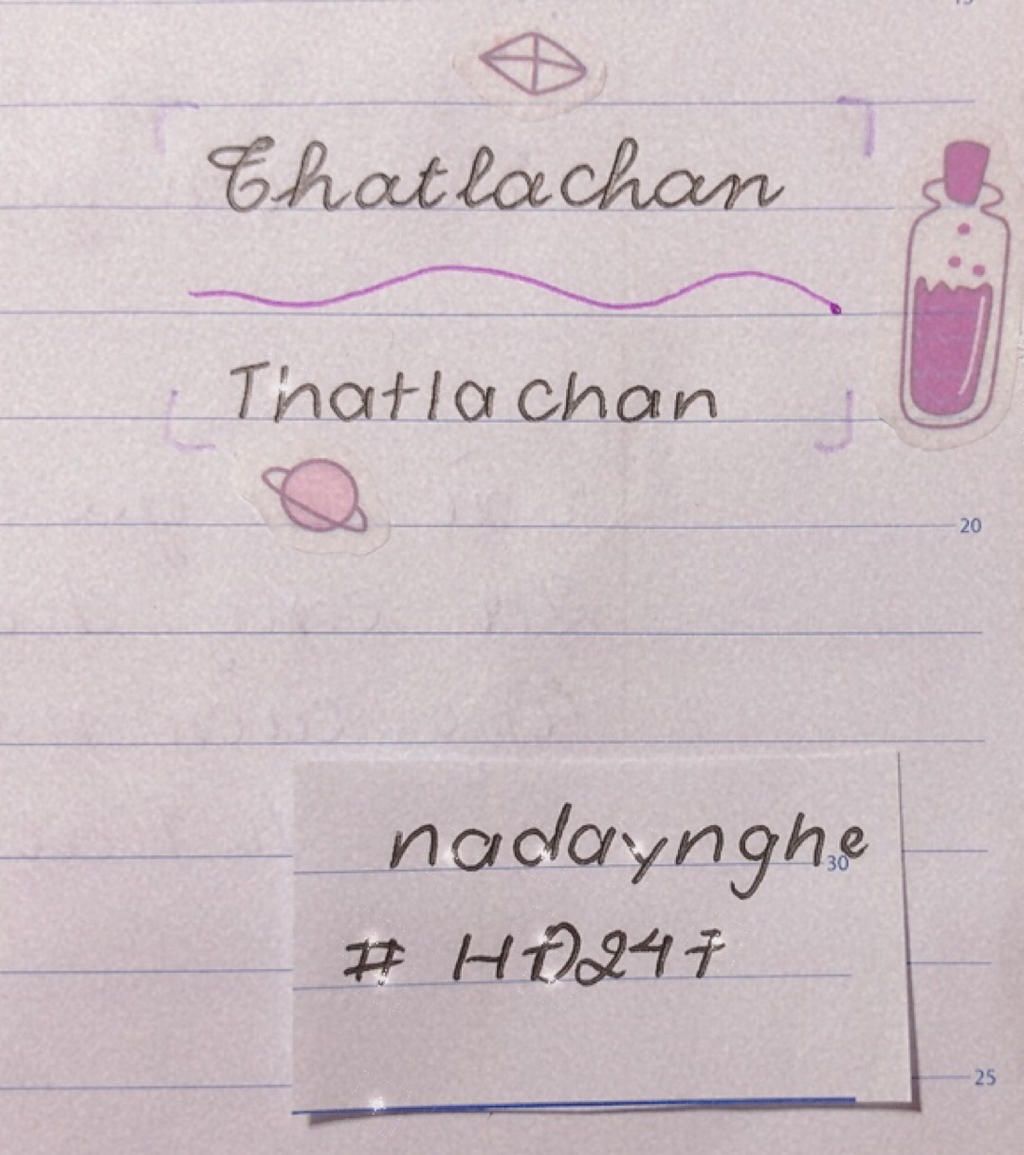 Thatlachan
Thatlachan
20
nadaynghe
30
# HĐ247
25